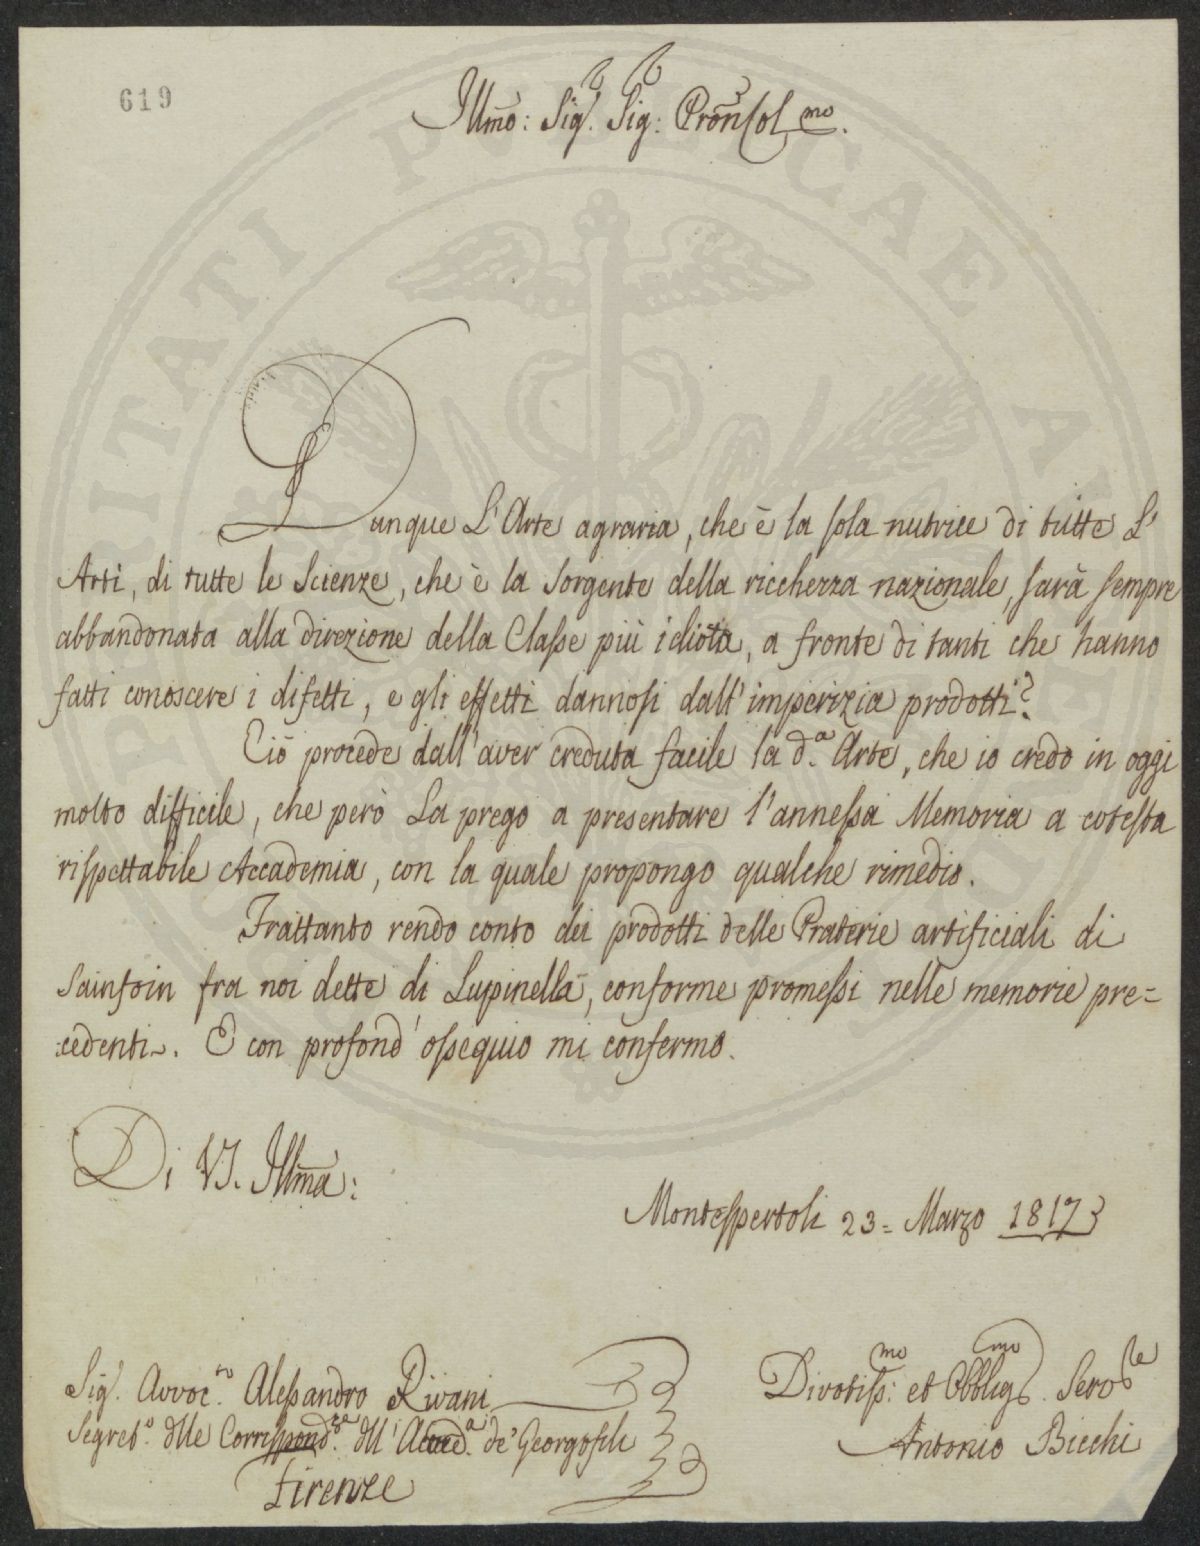 619
Illmo: Sig. Sig: Pron Col mo.
Dunque L'Arte agraria, che è la sola nutrice di tutte L'
Arti, di tutte le Scienze, che è la sorgente della ricchezza nazionale, sarà sempre
abbandonata alla direzione della Classe più idiota, a fronte di tanti che hanno
fatti conoscere i difetti, e gli effetti dannosi dall'imperizia prodotti?
Ciò procede dall'aver creduta facile la d.a Arte, che io credo in oggi
molto difficile, che però La prego a presentare l'annessa Memoria a cotesta
rispettabile Accademia, con la quale propongo qualche rimedio.
Frattanto rendo conto dei prodotti delle Praterie artificiali di
Sainfoin fra noi dette di Lupinella, conforme promessi nelle memorie pre=
:cedenti. E con profond'ossequio mi confermo.
Di VS. Illma:
Montespertoli 23= Marzo 1817
Sig. Avvoc.to Alessandro Rivani
Segret.o dlle Corrispond.ze dll'Accad.a de' Georgofili
Firenze
Divotiss:mo et Obblig.mo Servre
Antonio Bicchi
PUBLICAE